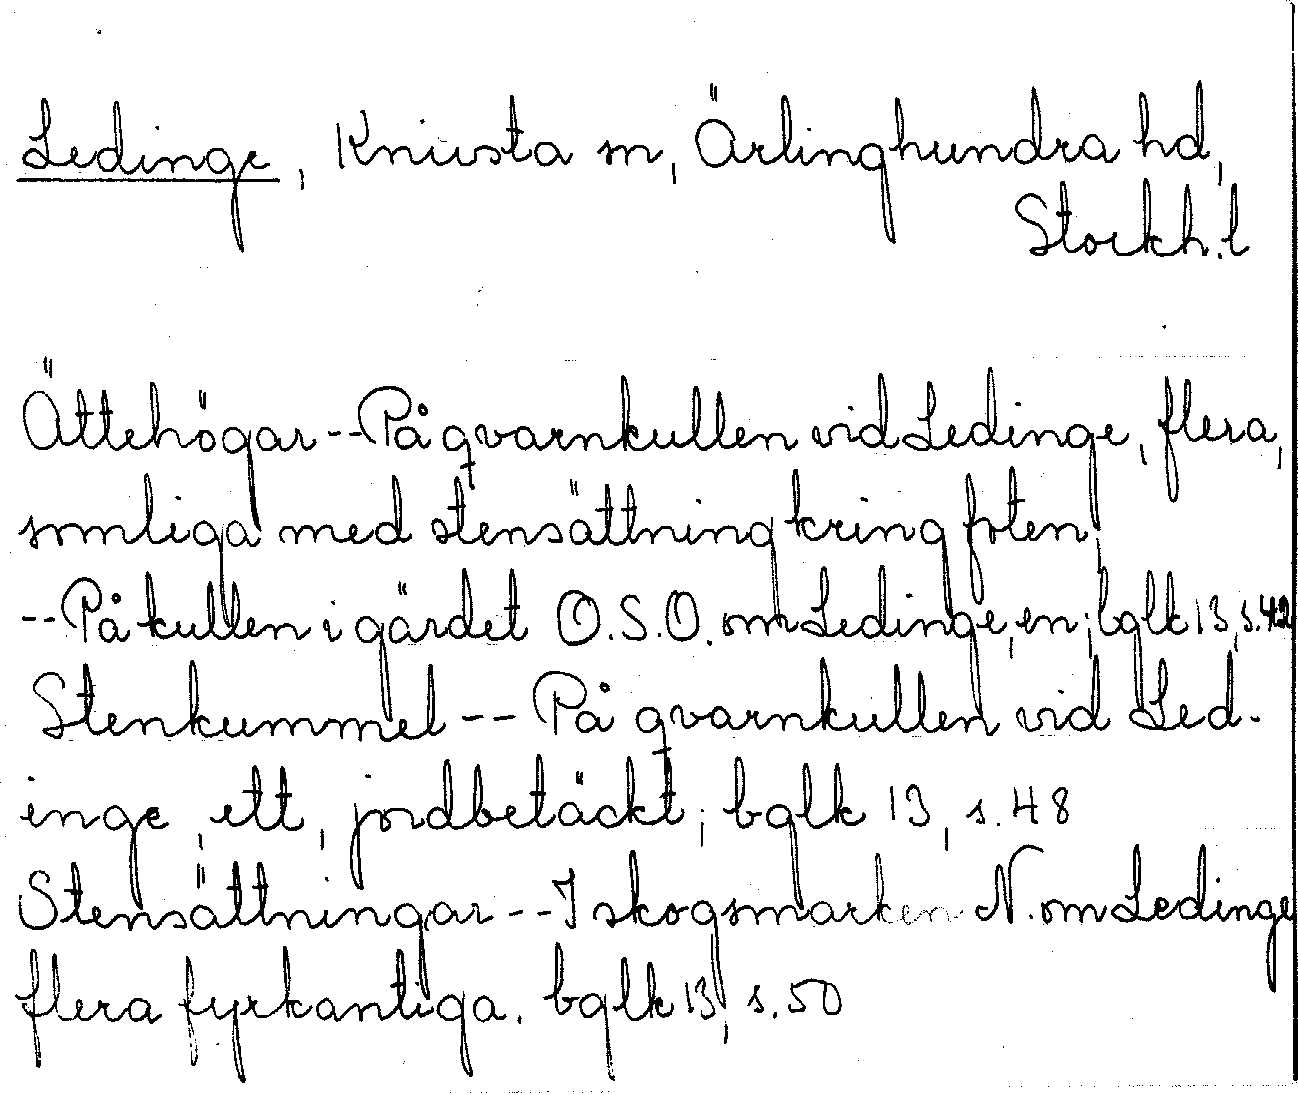 Ledinge, Knivsta sn, Ärlinghundra hd,
Stockh. l
Ättehögar -- På qvarnkullen vid Ledinge, flera,
somliga med stensättning kring foten;
-- På kullen i gärdet O.S.O. om Ledinge, en; bglk 13, s. 42
Stenkummel -- På qvarnkullen vid Led-
inge, ett, jordbetäckt; bglk 13, s. 48
Stensättningar -- I skogsmarken N. om Ledinge
flera fyrkantiga. bglk 13, s. 50